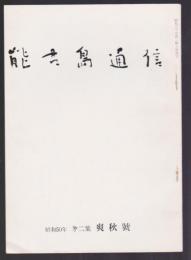 能古島通信
昭和50年 第二集 爽秋號